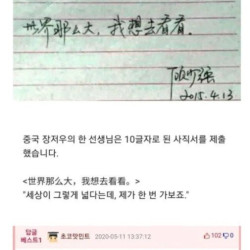 世界那么大,我想去看看.
2015.4.13
중국 장저우의 한 선생님은 10글자로 된 사직서를 제출
했습니다.
<世界那么大，我想去看看。>
"세상이 그렇게 넓다는데, 제가 한 번 가보죠."
답글
베스트1
초코맛민트
2020-03-11 13:37:12
102
0